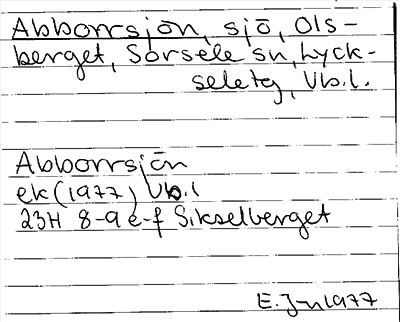 Abborrsjön, sjö, Ols-
berget, Sorsele sn, Lyck-
seletg, Vb.l.
Abborrsjön
ek (1977) Vb.l
23H 8-9 e-f Sikselberget
E. Jn 1977